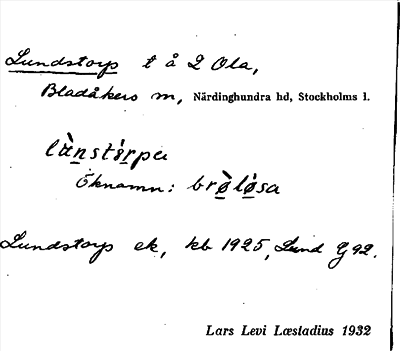 Lundstorp t å 2 Ola,
Bladåkers sn, Närdinghundra hd, Stockholms l.
Öknamn: brøløsa
Lundstorp ek, kb 1925, Lund G 92.
Lars Levi Læstadius 1932